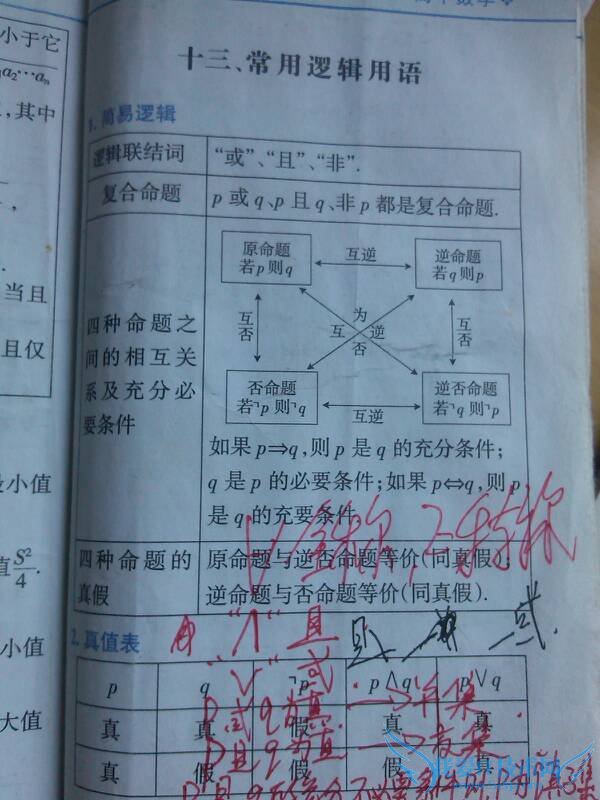 小于它
a₂…aₙ
,其中
当且
且仅
小值
值S²/4.
小值
大值
十三、常用逻辑用语
1. 简易逻辑
逻辑联结词
“或”、“且”、“非”.
复合命题
p 或 q、p 且 q、非 p 都是复合命题.
四种命题之
间的相互关
系及充分必
要条件
原命题
若 p 则 q
互逆
逆命题
若 q 则 p
互否
互为逆否
互否
否命题
若¬p 则¬q
互逆
逆否命题
若¬q 则¬p
如果 p⇒q,则 p 是 q 的充分条件;
q 是 p 的必要条件;如果 p⇔q,则 p
是 q 的充要条件
四种命题的
真假
原命题与逆否命题等价(同真假);
逆命题与否命题等价(同真假).
2. 真值表
“∧” 且
“∨” 或
p q ¬p p∧q p∨q
真 真 假 真 真
真 假 假 假 真
p或q为真 → 并集
p且q为真 → 交集